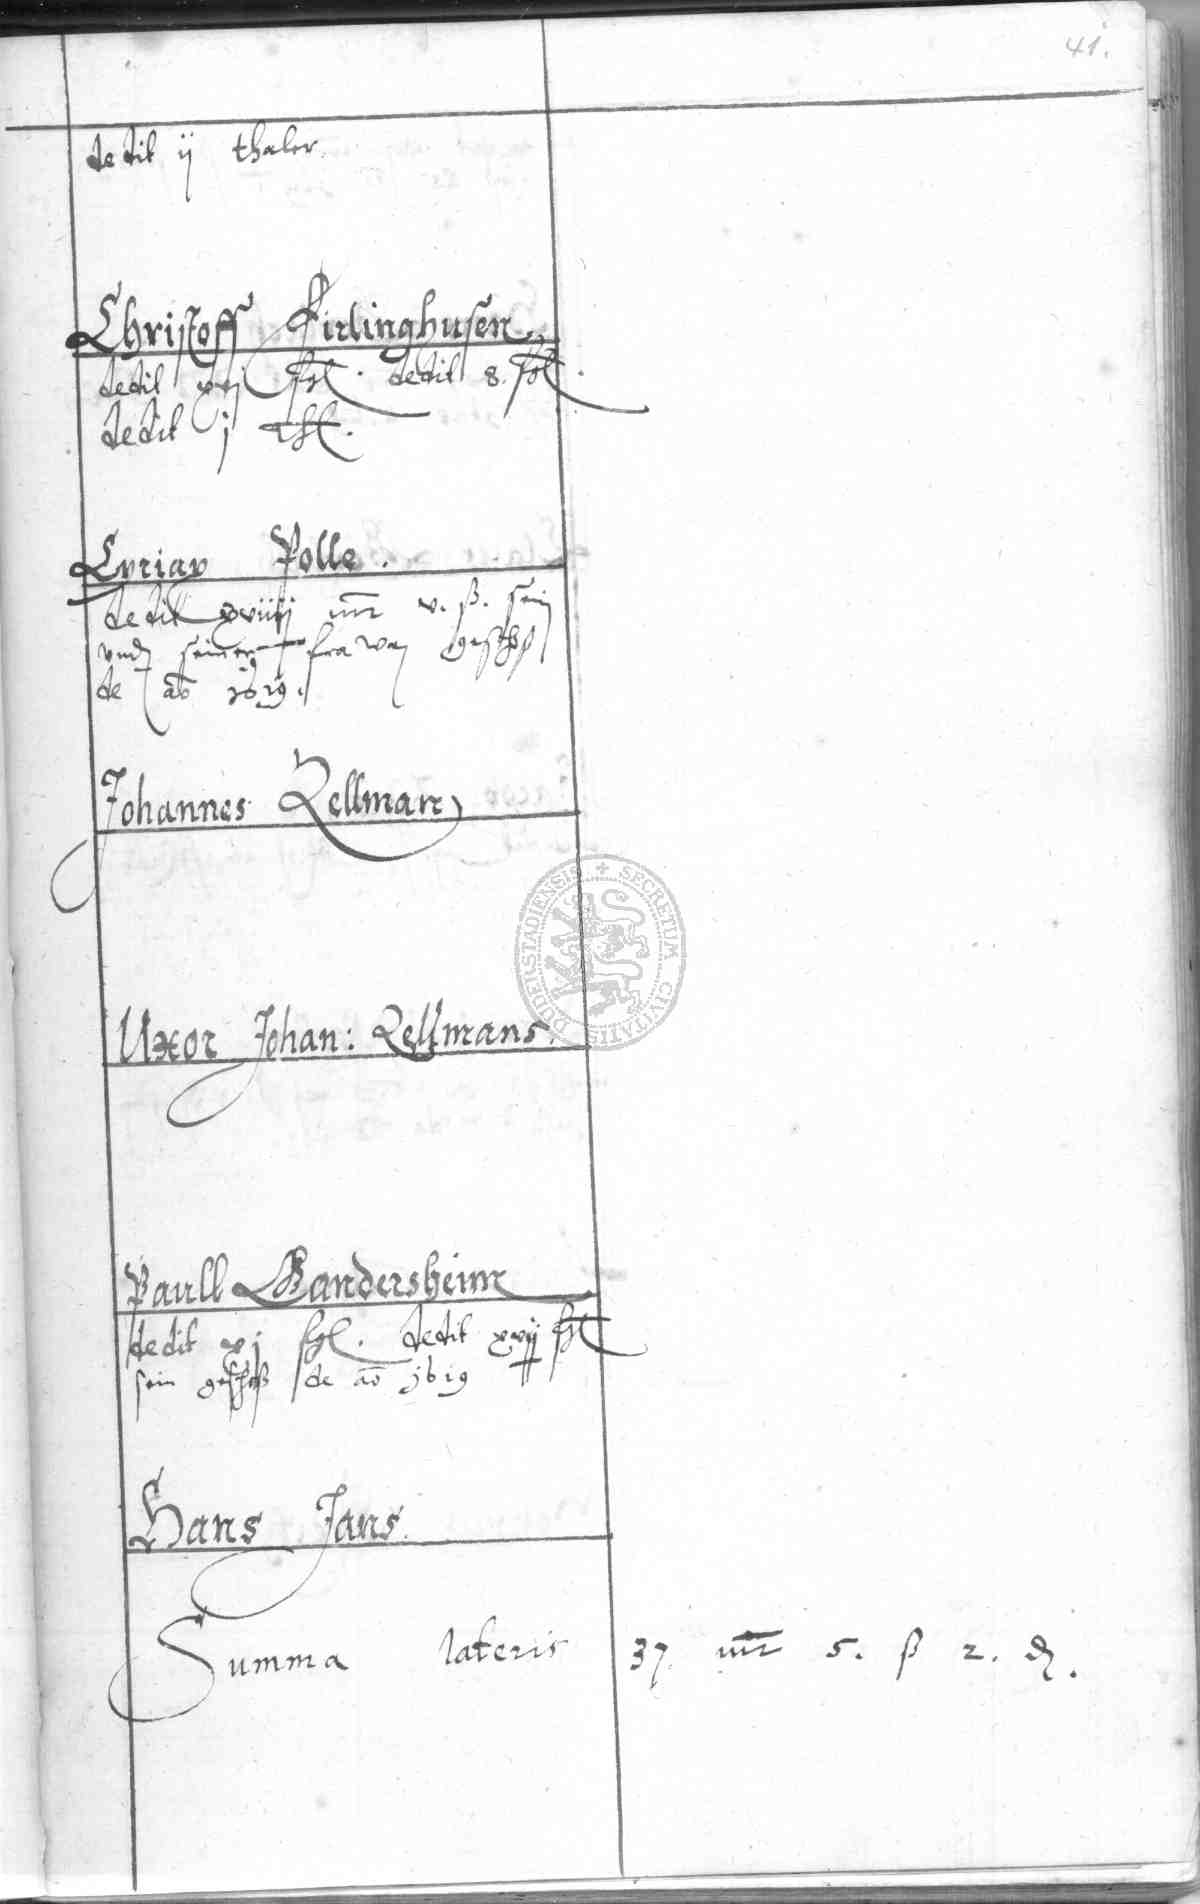 41.
dedit ij thaler.
Christoff Kirlinghusen
dedit xvj fgl. dedit 8. fgl.
dedit j thl.
Ciriax Polle.
dedit xviiij mr v. ß. sein
vnd seiner frawen geschoß
de ao 1619.
Johannes Zellman
Uxor Johan: Zellmans.
Paull Gandersheim
dedit xj fgl. dedit xvij fgl
sein geschoß de ao 1619
Hans Jans.
Summa lateris 37 mr 5. ß 2. d.
SECRETUM CIVITATIS DUDERSTADIENSIS